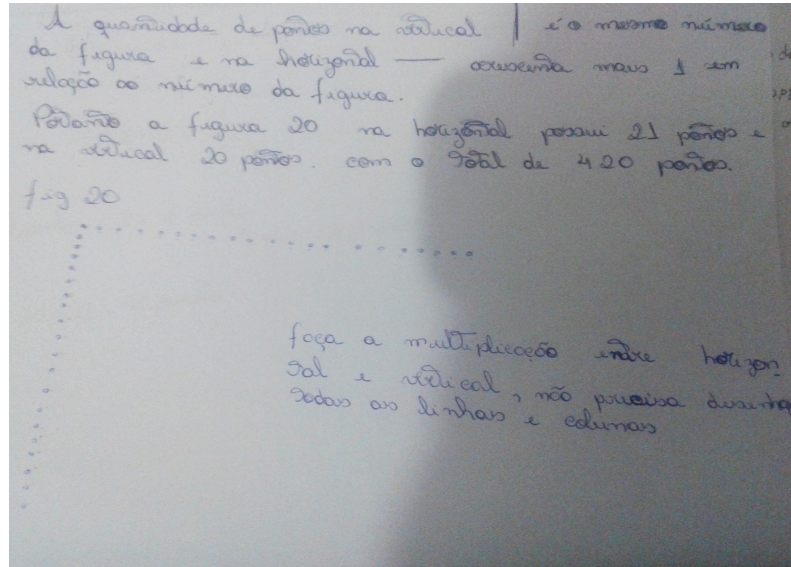 A quantidade de pontos na vertical | é o mesmo número
da figura e na horizontal — acrescenta mais 1 em
relação ao número da figura.
Portanto a figura 20 na horizontal possui 21 pontos e
na vertical 20 pontos. com o total de 420 pontos.
fig 20
faça a multiplicação entre horizon
tal e vertical, não precisa desenha
todas as linhas e colunas